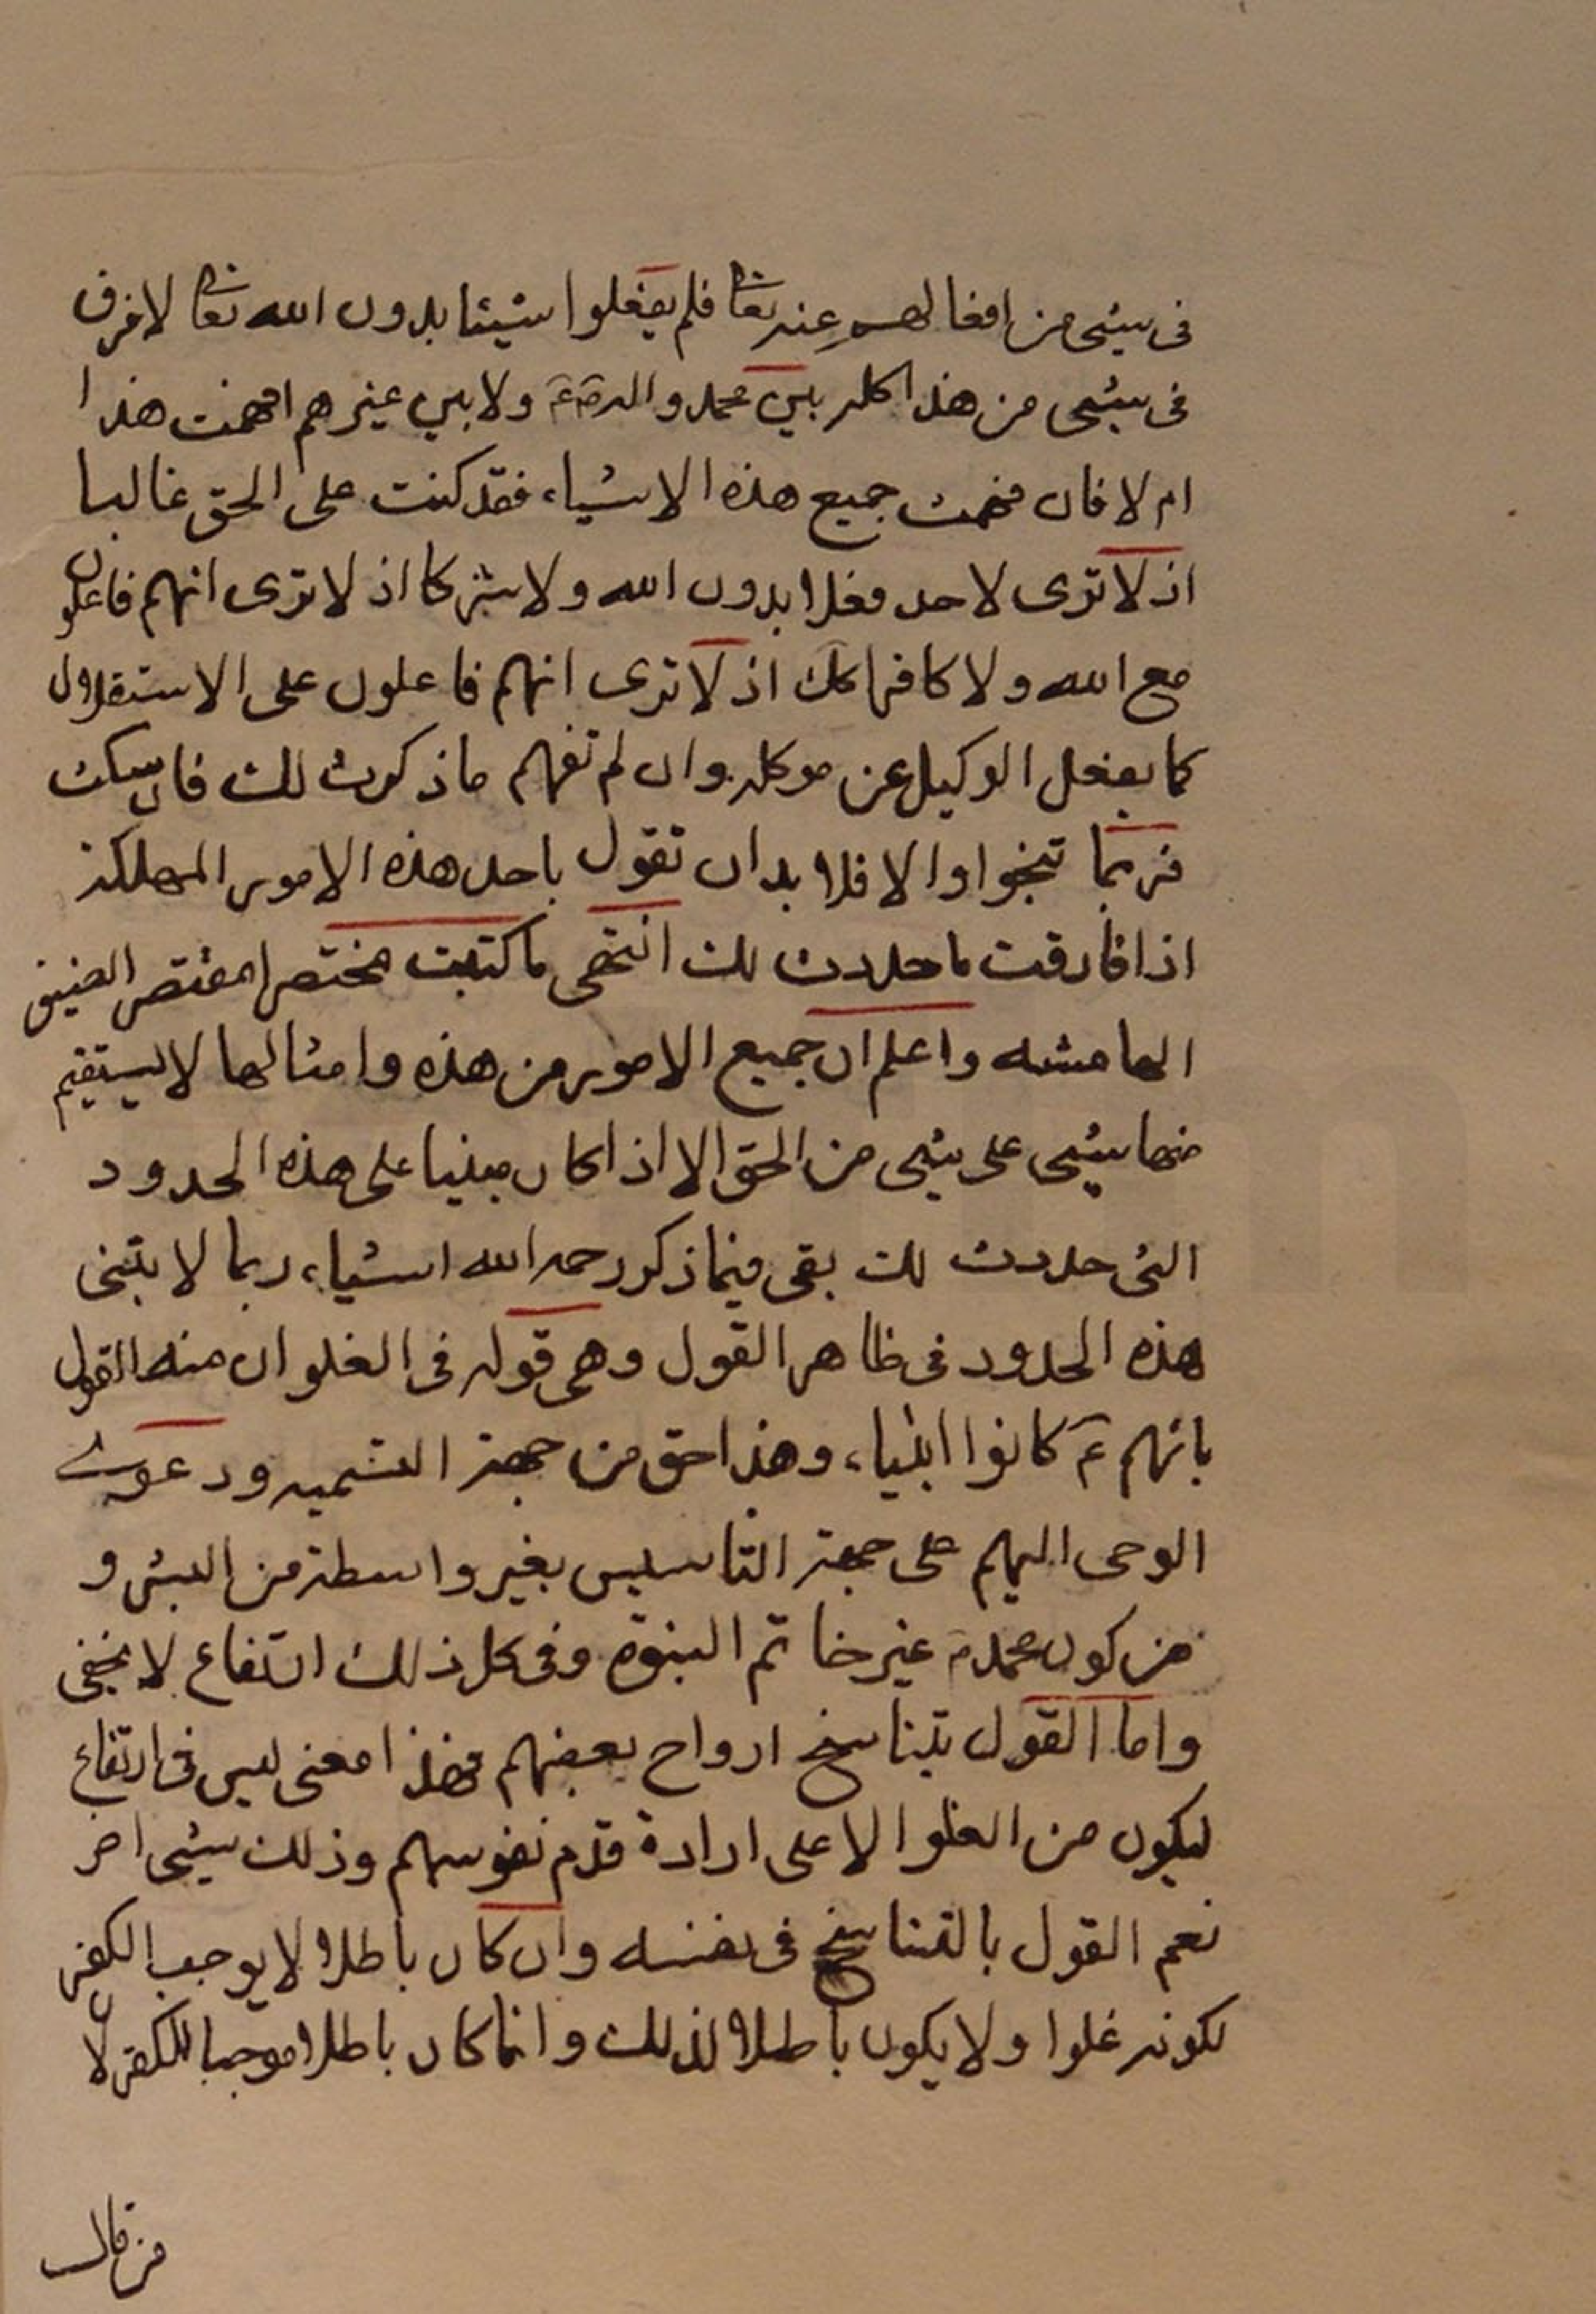 فى شيئ من افعالهم عنه تعا فلم يفعلوا شيئا بدون الله تعا لا فرق
فى شيئ من هذا كله بين محمد واله ص ع ولا بين غيرهم افهمت هذا
ام لا فان فهمت جميع هذه الاشياء فقد كنت على الحق غالبا
اذ لا ترى لاحد فعلا بدون الله ولا مشركا اذ لا ترى انهم فاعلون
مع الله ولا كافرا كك اذ لا ترى انهم فاعلون على الاستقلال
كما يفعل الوكيل عن موكله وان لم تفهم ما ذكرت لك فان سكت
فربما تنجوا والا فلا بد ان تقول باحد هذه الامور المهلكة
اذا فارقت ما حددت لك انتهى ما كتبت مختصرا مقتصر الضيق
الهامشه واعلم ان جميع الامور من هذه وامثالها لا يستقيم
منها شيئ على شيئ من الحق الا اذا كان مبنيا على هذه الحدود
التى حددت لك بقى فيما ذكر رحمه الله اشياء ربما لا يبتنى
هذه الحدود فى ظاهر القول وهى قوله فى الغلو ان منه القول
بانهم ع كانوا انبياء وهذا حق من جهة التسميه ودعوى
الوحى اليهم على جهة التاسيس بغير واسطة من البشر و
من كون محمد ص غير خاتم النبوة وفى كل ذلك ارتفاع لا يخفى
واما القول بتناسخ ارواح بعضهم فهذا معنى ليس فى ارتفاع
ليكون من الغلو الا على ارادة قدم نفوسهم وذلك شيئ اخر
نعم القول بالتناسخ فى نفسه وان كان باطلا لا يوجب الكفر
لكونه غلوا ولا يكون باطلا لذلك وانما كان باطلا موجبا للكفر لان
من قال